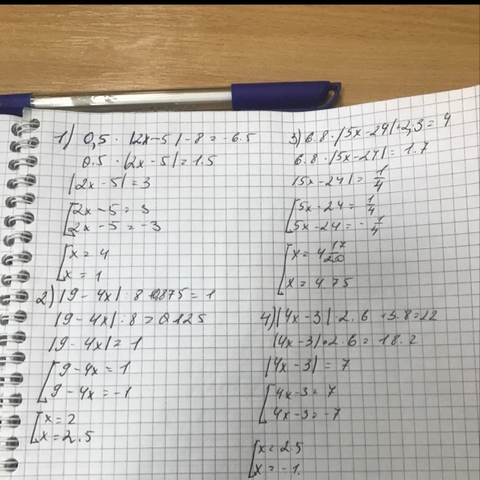 1) 0,5 · |2x-5| - 8 = -6.5
0.5 · |2x-5| = 1.5
|2x-5| = 3
[2x-5 = 3
2x-5 = -3
[x = 4
x = 1
2) |9-4x| : 8 + 0,875 = 1
|9-4x| : 8 = 0.125
|9-4x| = 1
[9-4x = 1
9-4x = -1
[x = 2
x = 2.5
3) 6.8 · |5x-24| + 2,3 = 4
6.8 · |5x-24| = 1.7
|5x-24| = 1/4
[5x-24 = 1/4
5x-24 = -1/4
[x = 4 17/20
x = 4.75
4) |4x-3| · 2.6 + 3.8 = 22
|4x-3| · 2.6 = 18.2
|4x-3| = 7
[4x-3 = 7
4x-3 = -7
[x = 2.5
x = -1.